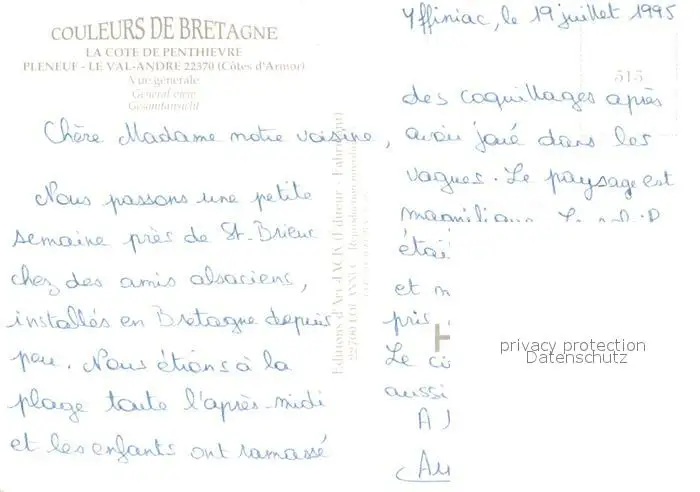 COULEURS DE BRETAGNE
LA COTE DE PENTHIEVRE
PLENEUF - LE VAL-ANDRE 22370 (Côtes d'Armor)
Vue générale
General view
Gesamtansicht
Yffiniac, le 19 juillet 1995
515
Chère Madame notre voisine,
Nous passons une petite
semaine près de St. Brieuc
chez des amis alsaciens,
installés en Bretagne depuis
peu. Nous étions à la
plage toute l'après-midi
et les enfants ont ramassé
des coquillages après
avoir joué dans les
vagues. Le paysage est
étai
et
pris
Le
aussi
A
Editions d'Art JACK
privacy protection
Datenschutz